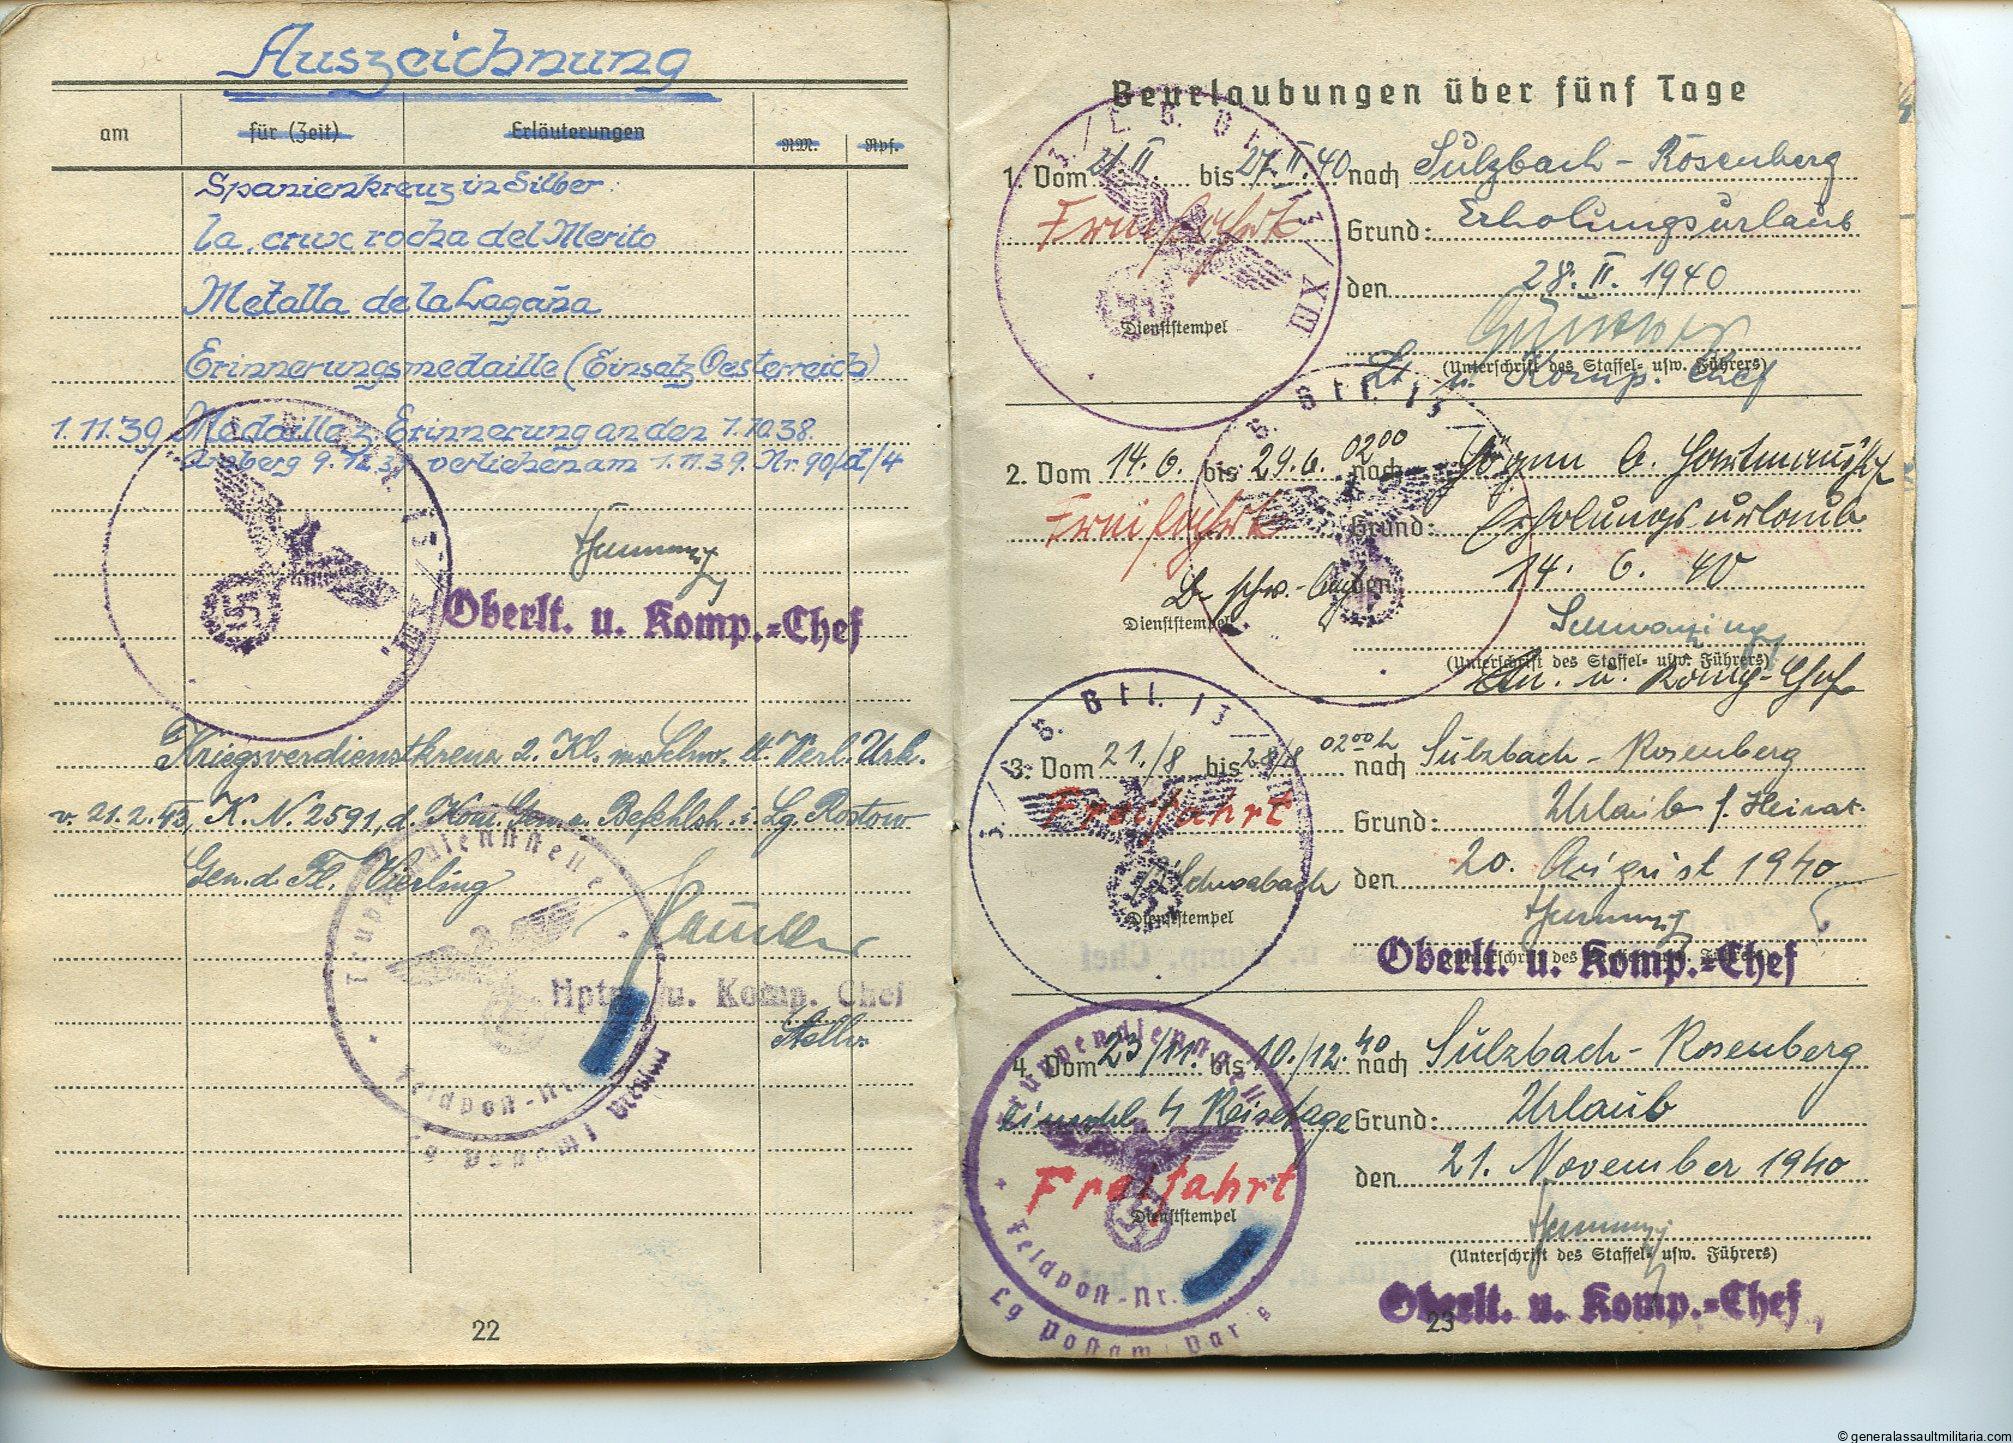 Auszeichnung
am
für (Zeit)
Erläuterungen
RM.
Rpf.
Spanienkreuz in Silber.
la. crux rocha del Merito
Metalla de la Lagaña
Erinnerungsmedaille (Einsatz Oesterreich)
1.11.39 Medaille z. Erinnerung an den 1.10.38.
verliehen am 1.11.39. Nr. 90/d/4
Oberlt. u. Komp.-Chef
Kriegsverdienstkreuz 2. Kl. m. Schw. lt. Verl. Urk.
v. 21.2.43, K. N. 2591, d. Kom. Gen. u. Befehlsh. i. Lg. Rostow
Gen. d. Fl. Vierling
Hptm. u. Komp. Chef
Stellv.
Feldpost-Nr.
22
Beurlaubungen über fünf Tage
1. Vom 21. II. bis 27. II. 40 nach Sulzbach-Rosenberg
Freifahrt Grund: Erholungsurlaub
den 28. II. 1940
Dienststempel
(Unterschrift des Staffel- usw. Führers)
Lt. u. Komp. Chef
2. Vom 14.6. bis 29.6. 02⁰⁰ nach
Freifahrt Grund: Erholungsurlaub
den 14. 6. 40
Dienststempel
(Unterschrift des Staffel- usw. Führers)
u. Komp.-Chef
3. Vom 21./8 bis 28/8 02⁰⁰ h nach Sulzbach-Rosenberg
Freifahrt Grund: Urlaub f. Heirat
Schwabach den 20. August 1940
Dienststempel
Oberlt. u. Komp.-Chef
4. Vom 23/11. bis 10./12. 40 nach Sulzbach-Rosenberg
einschl. 4 Reisetage Grund: Urlaub
den 21. November 1940
Freifahrt
Dienststempel
(Unterschrift des Staffel- usw. Führers)
Feldpost-Nr.
Lg Postamt Paris
Oberlt. u. Komp.-Chef
23
© generalassaultmilitaria.com